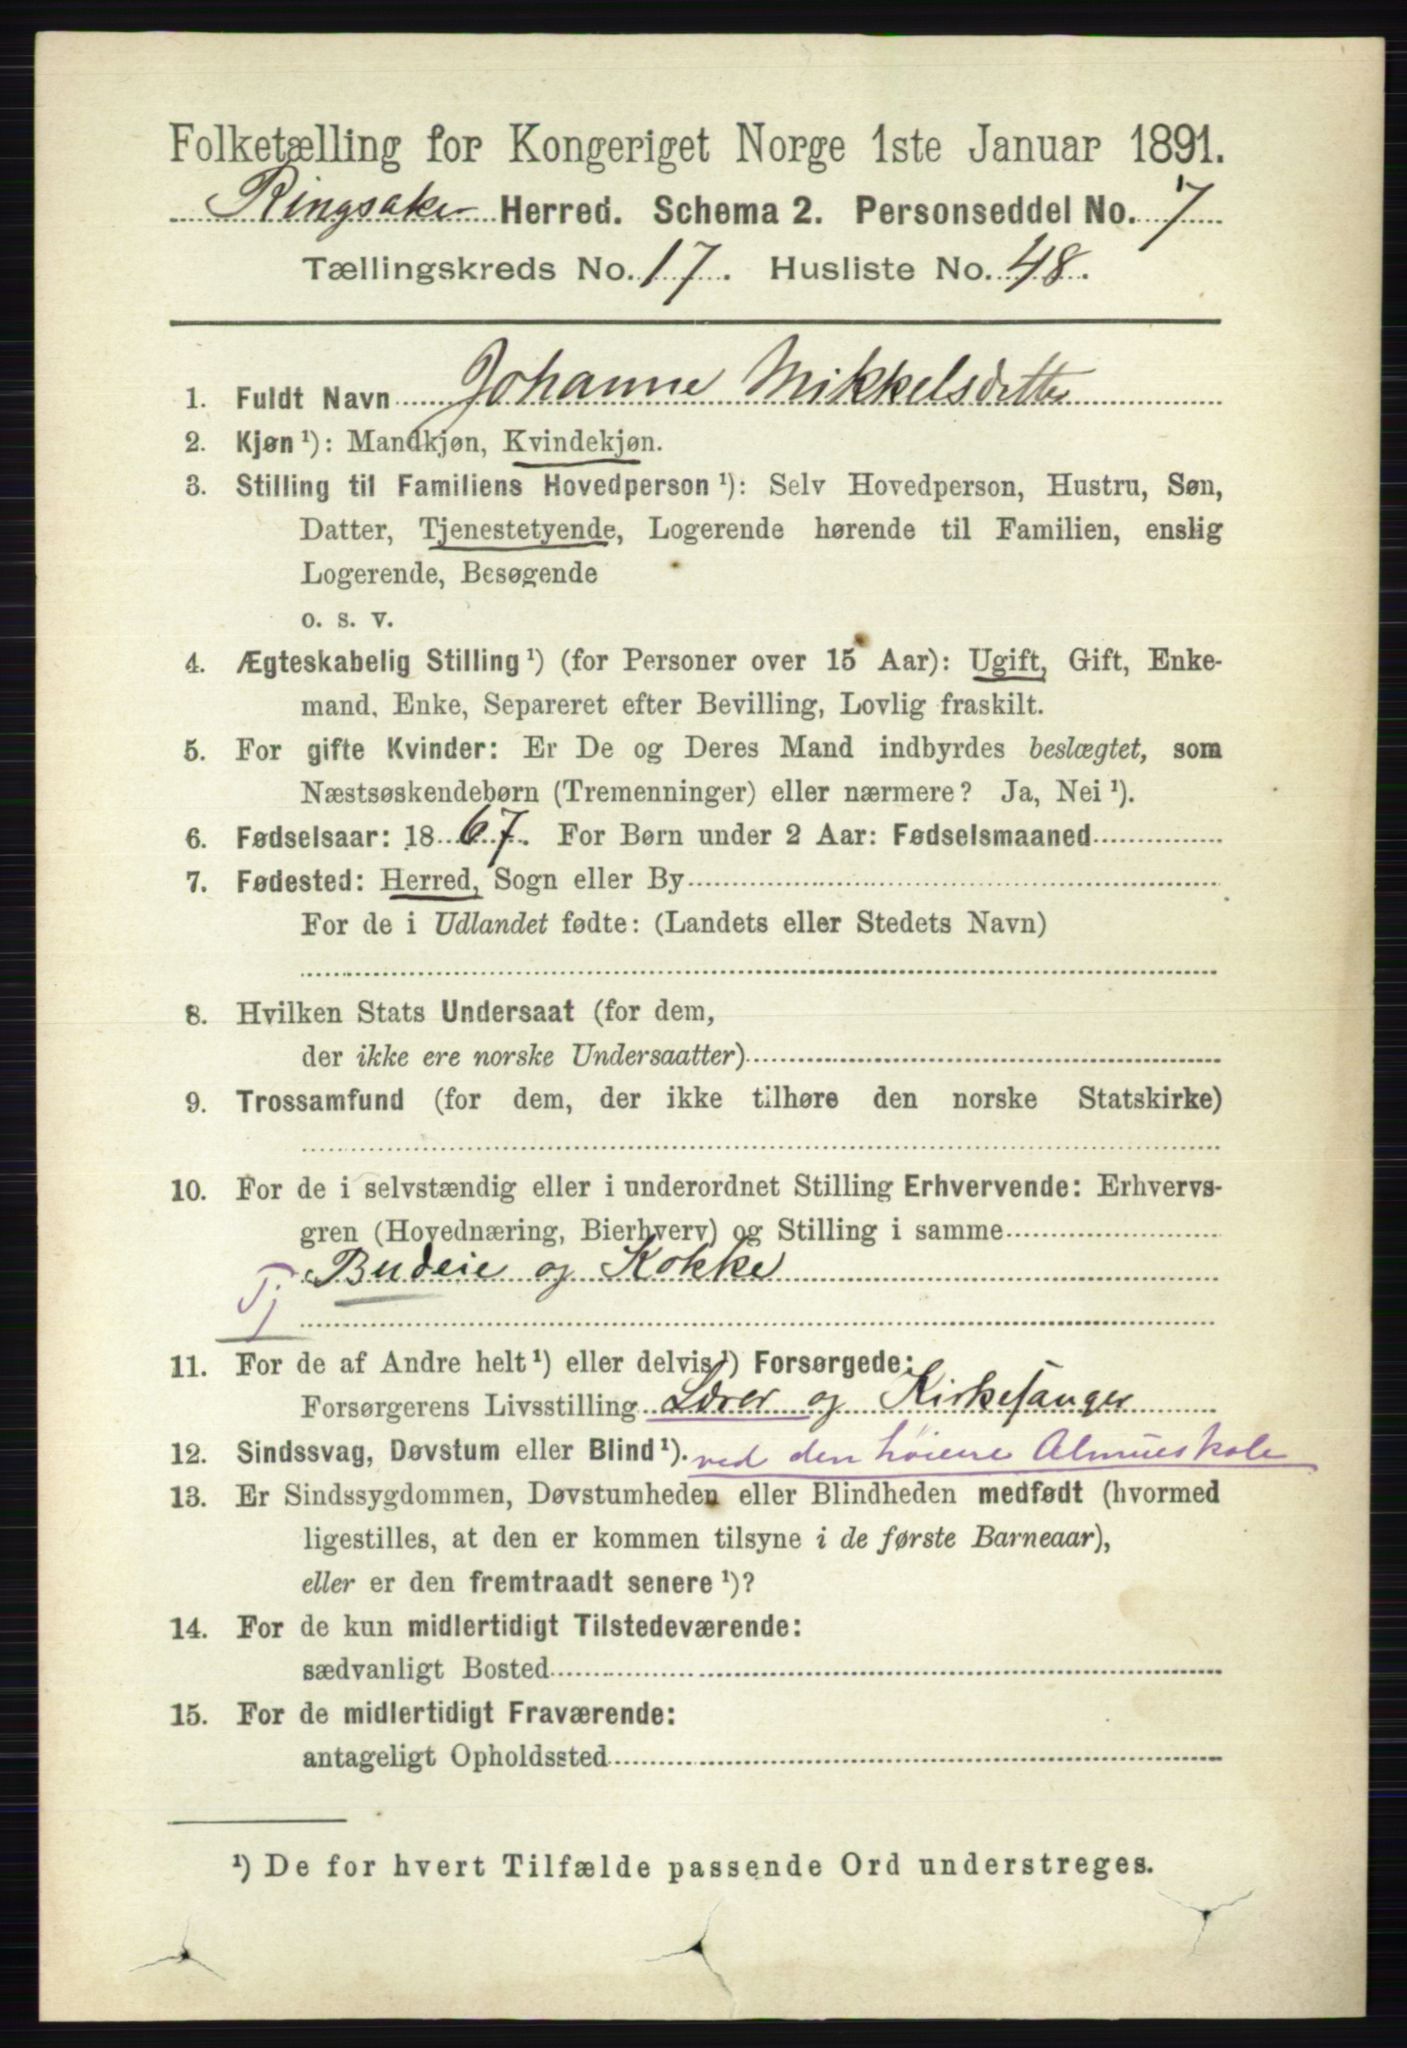 Folketælling for Kongeriget Norge 1ste Januar 1891.
Ringsaker Herred. Schema 2. Personseddel No. 7
Tællingskreds No. 17. Husliste No. 48.
1. Fuldt Navn Johanne Mikkelsdatter
2. Kjøn ¹): Mandkjøn, Kvindekjøn.
3. Stilling til Familiens Hovedperson ¹): Selv Hovedperson, Hustru, Søn,
Datter, Tjenestetyende, Logerende hørende til Familien, enslig
Logerende, Besøgende
o. s. v.
4. Ægteskabelig Stilling ¹) (for Personer over 15 Aar): Ugift, Gift, Enke-
mand, Enke, Separeret efter Bevilling, Lovlig fraskilt.
5. For gifte Kvinder: Er De og Deres Mand indbyrdes beslægtet, som
Næstsøskendebørn (Tremenninger) eller nærmere? Ja, Nei ¹).
6. Fødselsaar: 1867. For Børn under 2 Aar: Fødselsmaaned
7. Fødested: Herred, Sogn eller By
For de i Udlandet fødte: (Landets eller Stedets Navn)
8. Hvilken Stats Undersaat (for dem,
der ikke ere norske Undersaatter)
9. Trossamfund (for dem, der ikke tilhøre den norske Statskirke)
10. For de i selvstændig eller i underordnet Stilling Erhvervende: Erhvervs-
gren (Hovednæring, Bierhverv) og Stilling i samme
Budeie og Kokke
Tj
11. For de af Andre helt ¹) eller delvis ¹) Forsørgede:
Forsørgerens Livsstilling Lærer og Kirkesanger
12. Sindssvag, Døvstum eller Blind ¹). ved den høiere Almueskole
13. Er Sindssygdommen, Døvstumheden eller Blindheden medfødt (hvormed
ligestilles, at den er kommen tilsyne i de første Barneaar),
eller er den fremtraadt senere ¹)?
14. For de kun midlertidigt Tilstedeværende:
sædvanligt Bosted
15. For de midlertidigt Fraværende:
antageligt Opholdssted
¹) De for hvert Tilfælde passende Ord understreges.